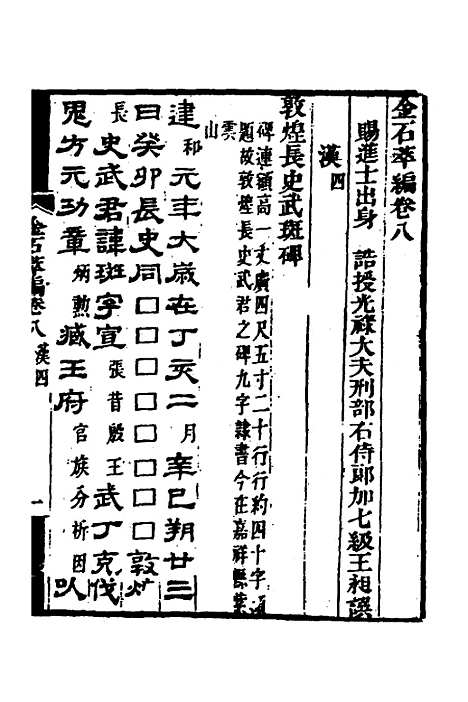 金石萃編卷八
賜進士出身 誥授光祿大夫刑部右侍郎加七級王昶譔
漢四
敦煌長史武斑碑
碑連額高一丈廣四尺五寸二十行行約四十字通
題故敦煌長史武君之碑九字隸書今在嘉祥縣紫
雲
山
建和元年大歲在丁亥二月辛巳朔廿三
日癸卯長史同□□□□□□□敦煌
長史武君諱斑字宣張昔殷王武丁克伐
鬼方元功章炳勳臧王府官族分析因以
金石萃編卷八 漢四 一